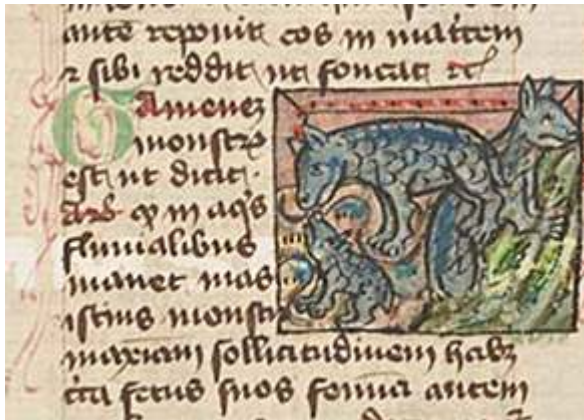 ante reponit eos in matrem
⁊ sibi reddit ut foueat ⁊c
Gamenez
monstrū
est ut dicit
ꝙ in aqis
fluuialibus
manet mas
istius monstri
maxiam sollicitudinem habꝫ
cͥca fetus suos femina autem